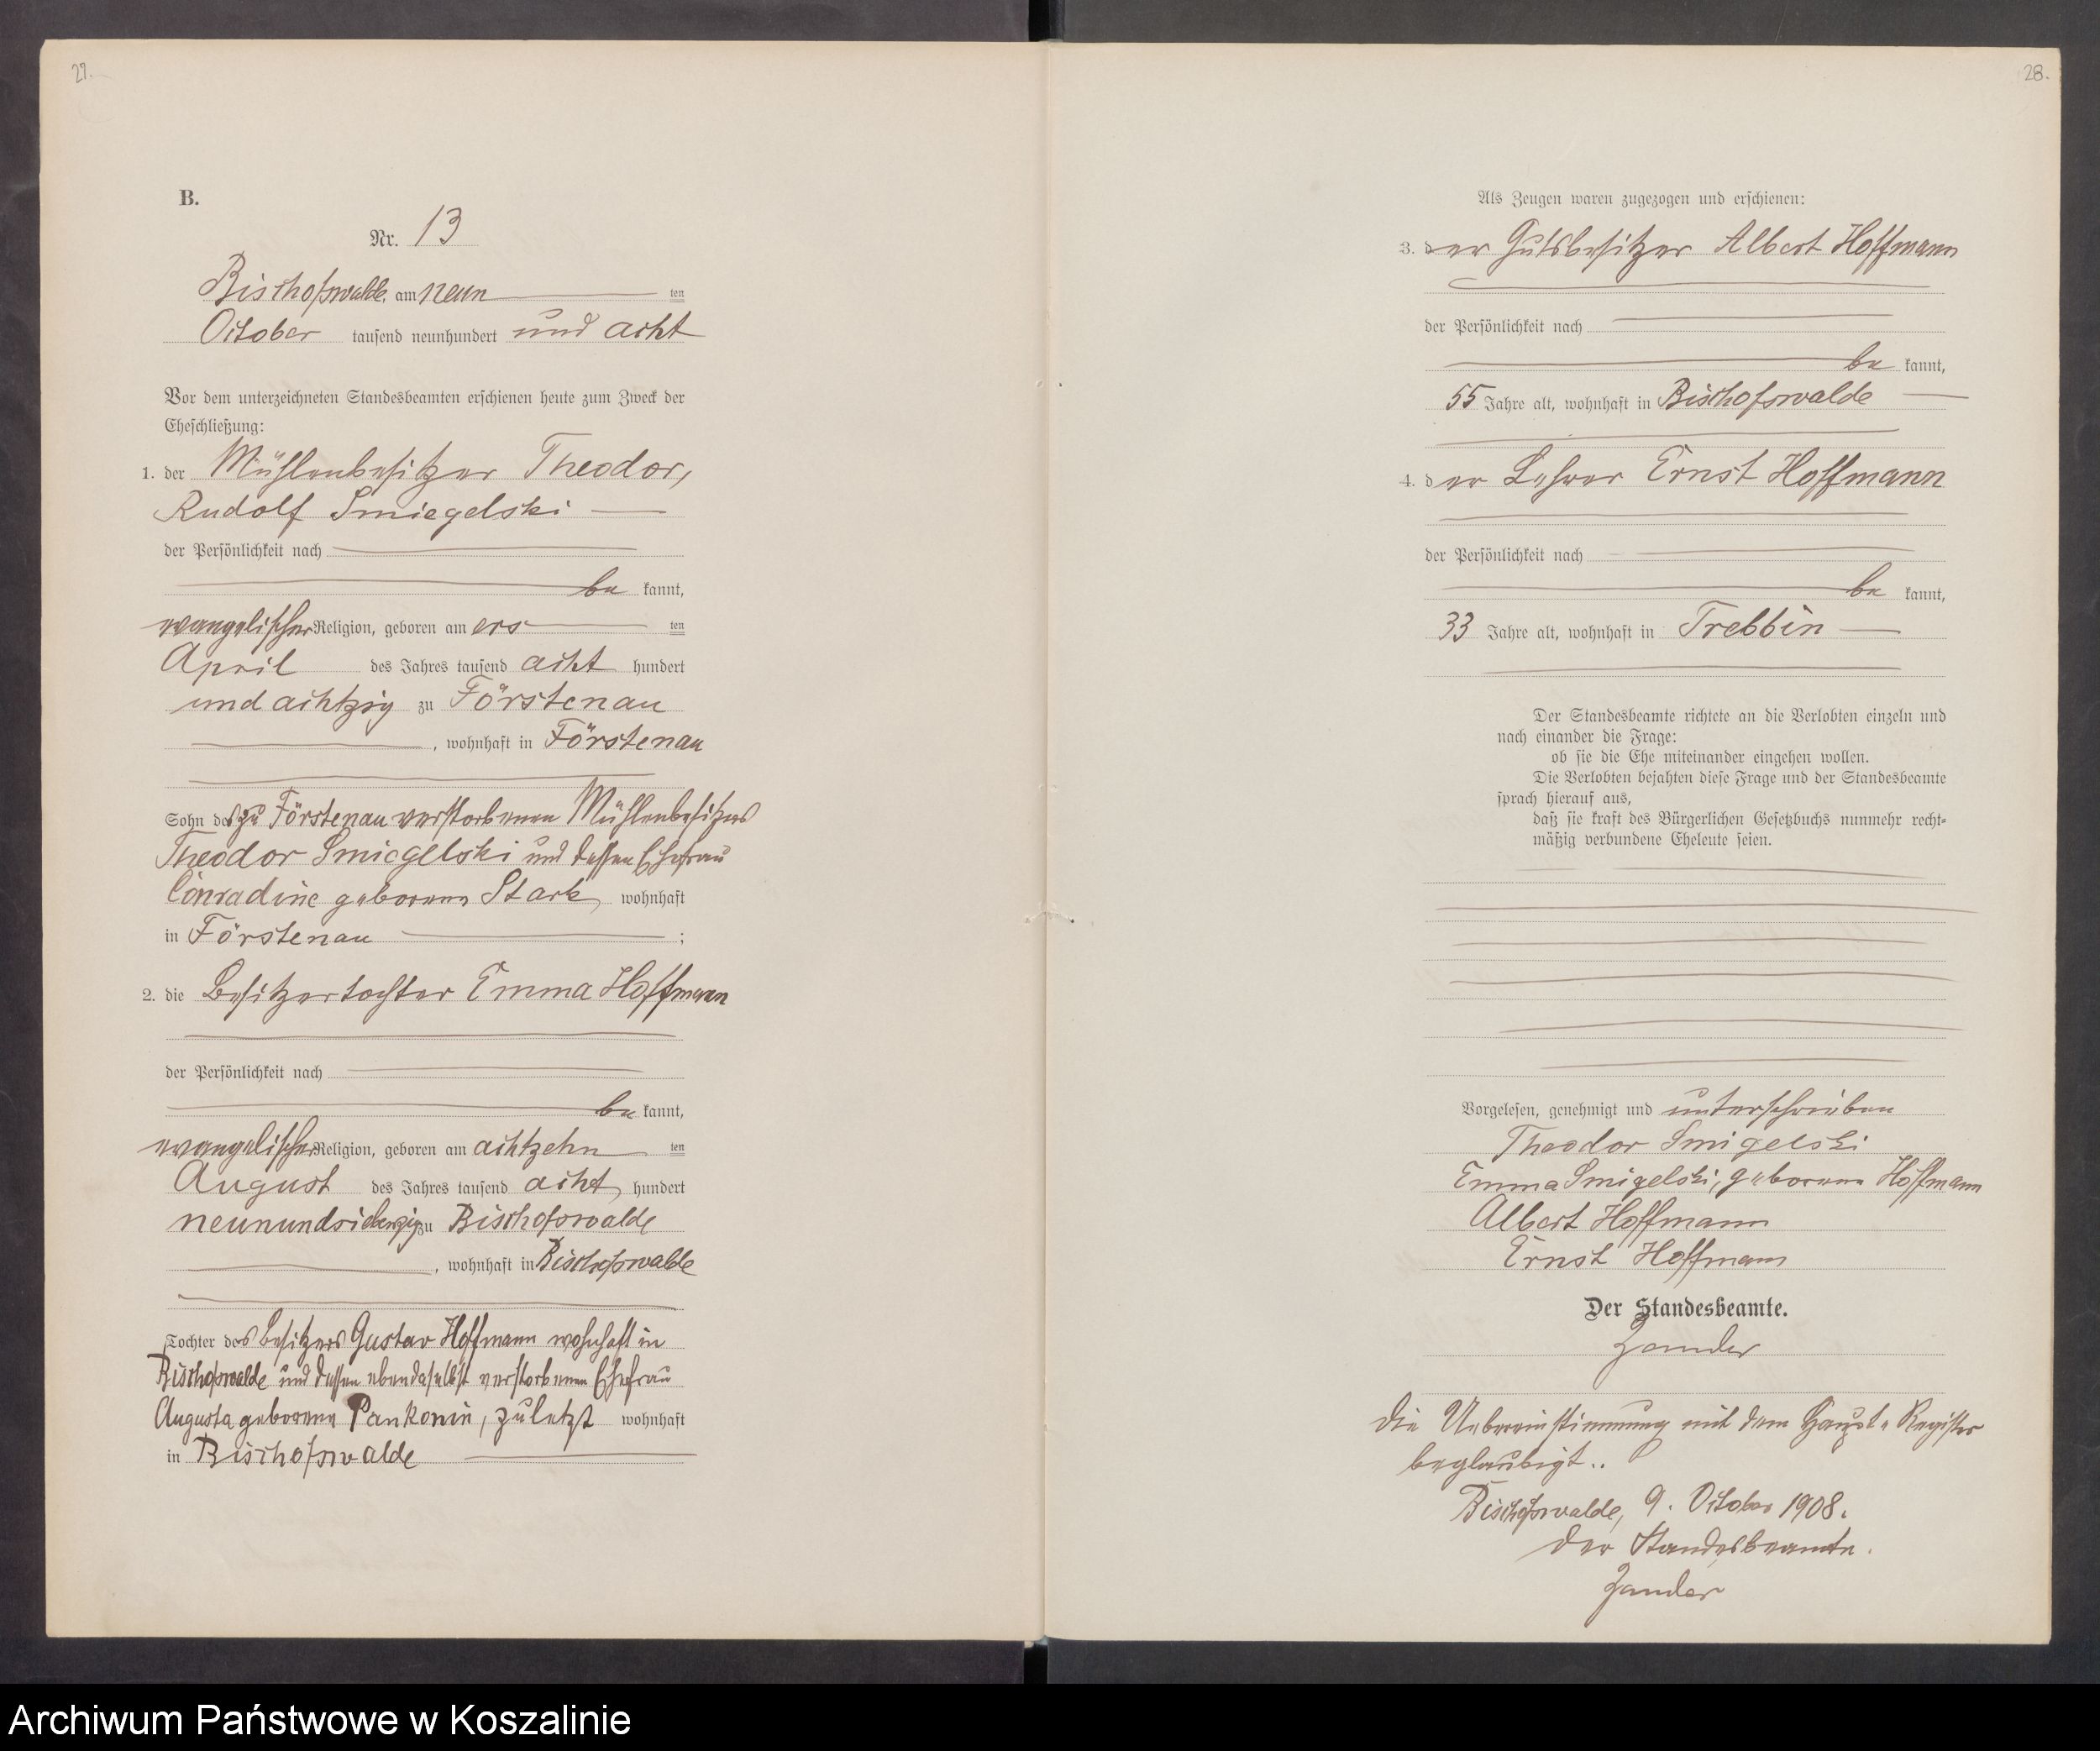 27.
B.
Nr. 13
Bischofswalde, am neun ten
October tausend neunhundert und acht
Vor dem unterzeichneten Standesbeamten erschienen heute zum Zweck der
Eheschließung:
1. der Mühlenbesitzer Theodor,
Rudolf Smiegelski
der Persönlichkeit nach
be kannt,
evangelischer Religion, geboren am ers ten
April des Jahres tausend acht hundert
und achtzig zu Förstenau
, wohnhaft in Förstenau
Sohn des zu Förstenau verstorbenen Mühlenbesitzers
Theodor Smiegelski und dessen Ehefrau
Conradine geborene Stark wohnhaft
in Förstenau ;
2. die Besitzertochter Emma Hoffmann
der Persönlichkeit nach
be kannt,
evangelischer Religion, geboren am achtzehn ten
August des Jahres tausend acht hundert
neunundsiebenzig zu Bischofswalde
, wohnhaft in Bischofswalde
Tochter des Besitzers Gustav Hoffmann wohnhaft in
Bischofswalde und dessen ebendaselbst verstorbenen Ehefrau
Augusta geborene Pankonin, zuletzt wohnhaft
in Bischofswalde
28.
Als Zeugen waren zugezogen und erschienen:
3. der Gutsbesitzer Albert Hoffmann
der Persönlichkeit nach
be kannt,
55 Jahre alt, wohnhaft in Bischofswalde
4. der Lehrer Ernst Hoffmann
der Persönlichkeit nach
be kannt,
33 Jahre alt, wohnhaft in Trebbin
Der Standesbeamte richtete an die Verlobten einzeln und
nach einander die Frage:
ob sie die Ehe miteinander eingehen wollen.
Die Verlobten bejahten diese Frage und der Standesbeamte
sprach hierauf aus,
daß sie kraft des Bürgerlichen Gesetzbuchs nunmehr recht-
mäßig verbundene Eheleute seien.
Vorgelesen, genehmigt und unterschrieben
Theodor Smigelski
Emma Smigelski, geborene Hoffmann
Albert Hoffmann
Ernst Hoffmann
Der Standesbeamte.
Zander
Die Uebereinstimmung mit dem Haupt-Register
beglaubigt..
Bischofswalde, 9. October 1908.
Der Standesbeamte.
Zander
Archiwum Państwowe w Koszalinie